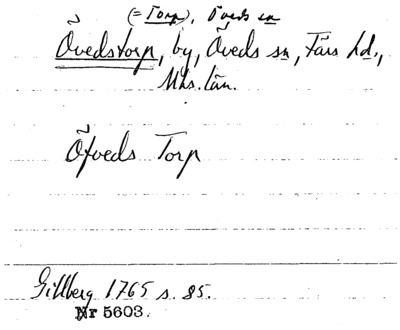 (= Torp), Öveds sn
Övedstorp, by, Öveds sn, Färs hd.,
Mhs. län.
Öfveds Torp
Gillberg 1765 s. 85.
Nr 5603.